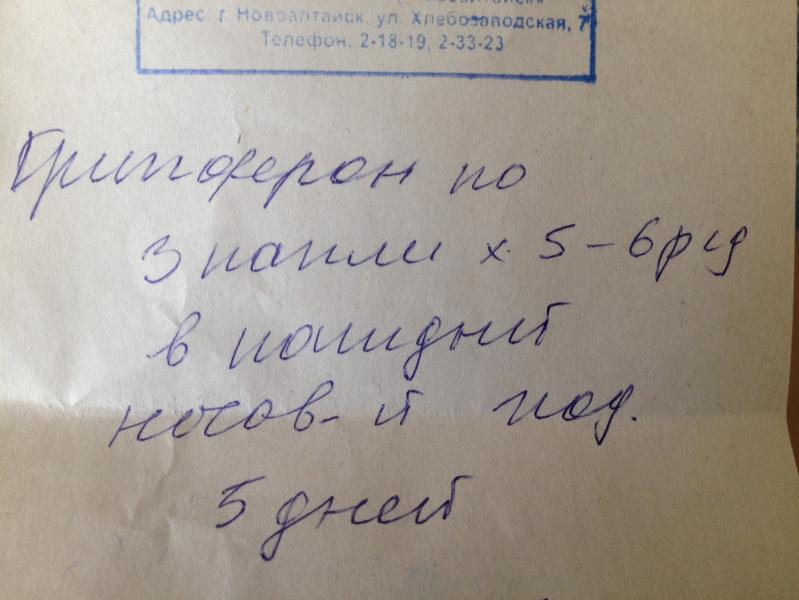 Адрес: г. Новоалтайск, ул. Хлебозаводская, 7
Телефон: 2-18-19, 2-33-23
Гриппферон по
3 капли х 5-6 р/д
в каждый
носов-й ход.
5 дней